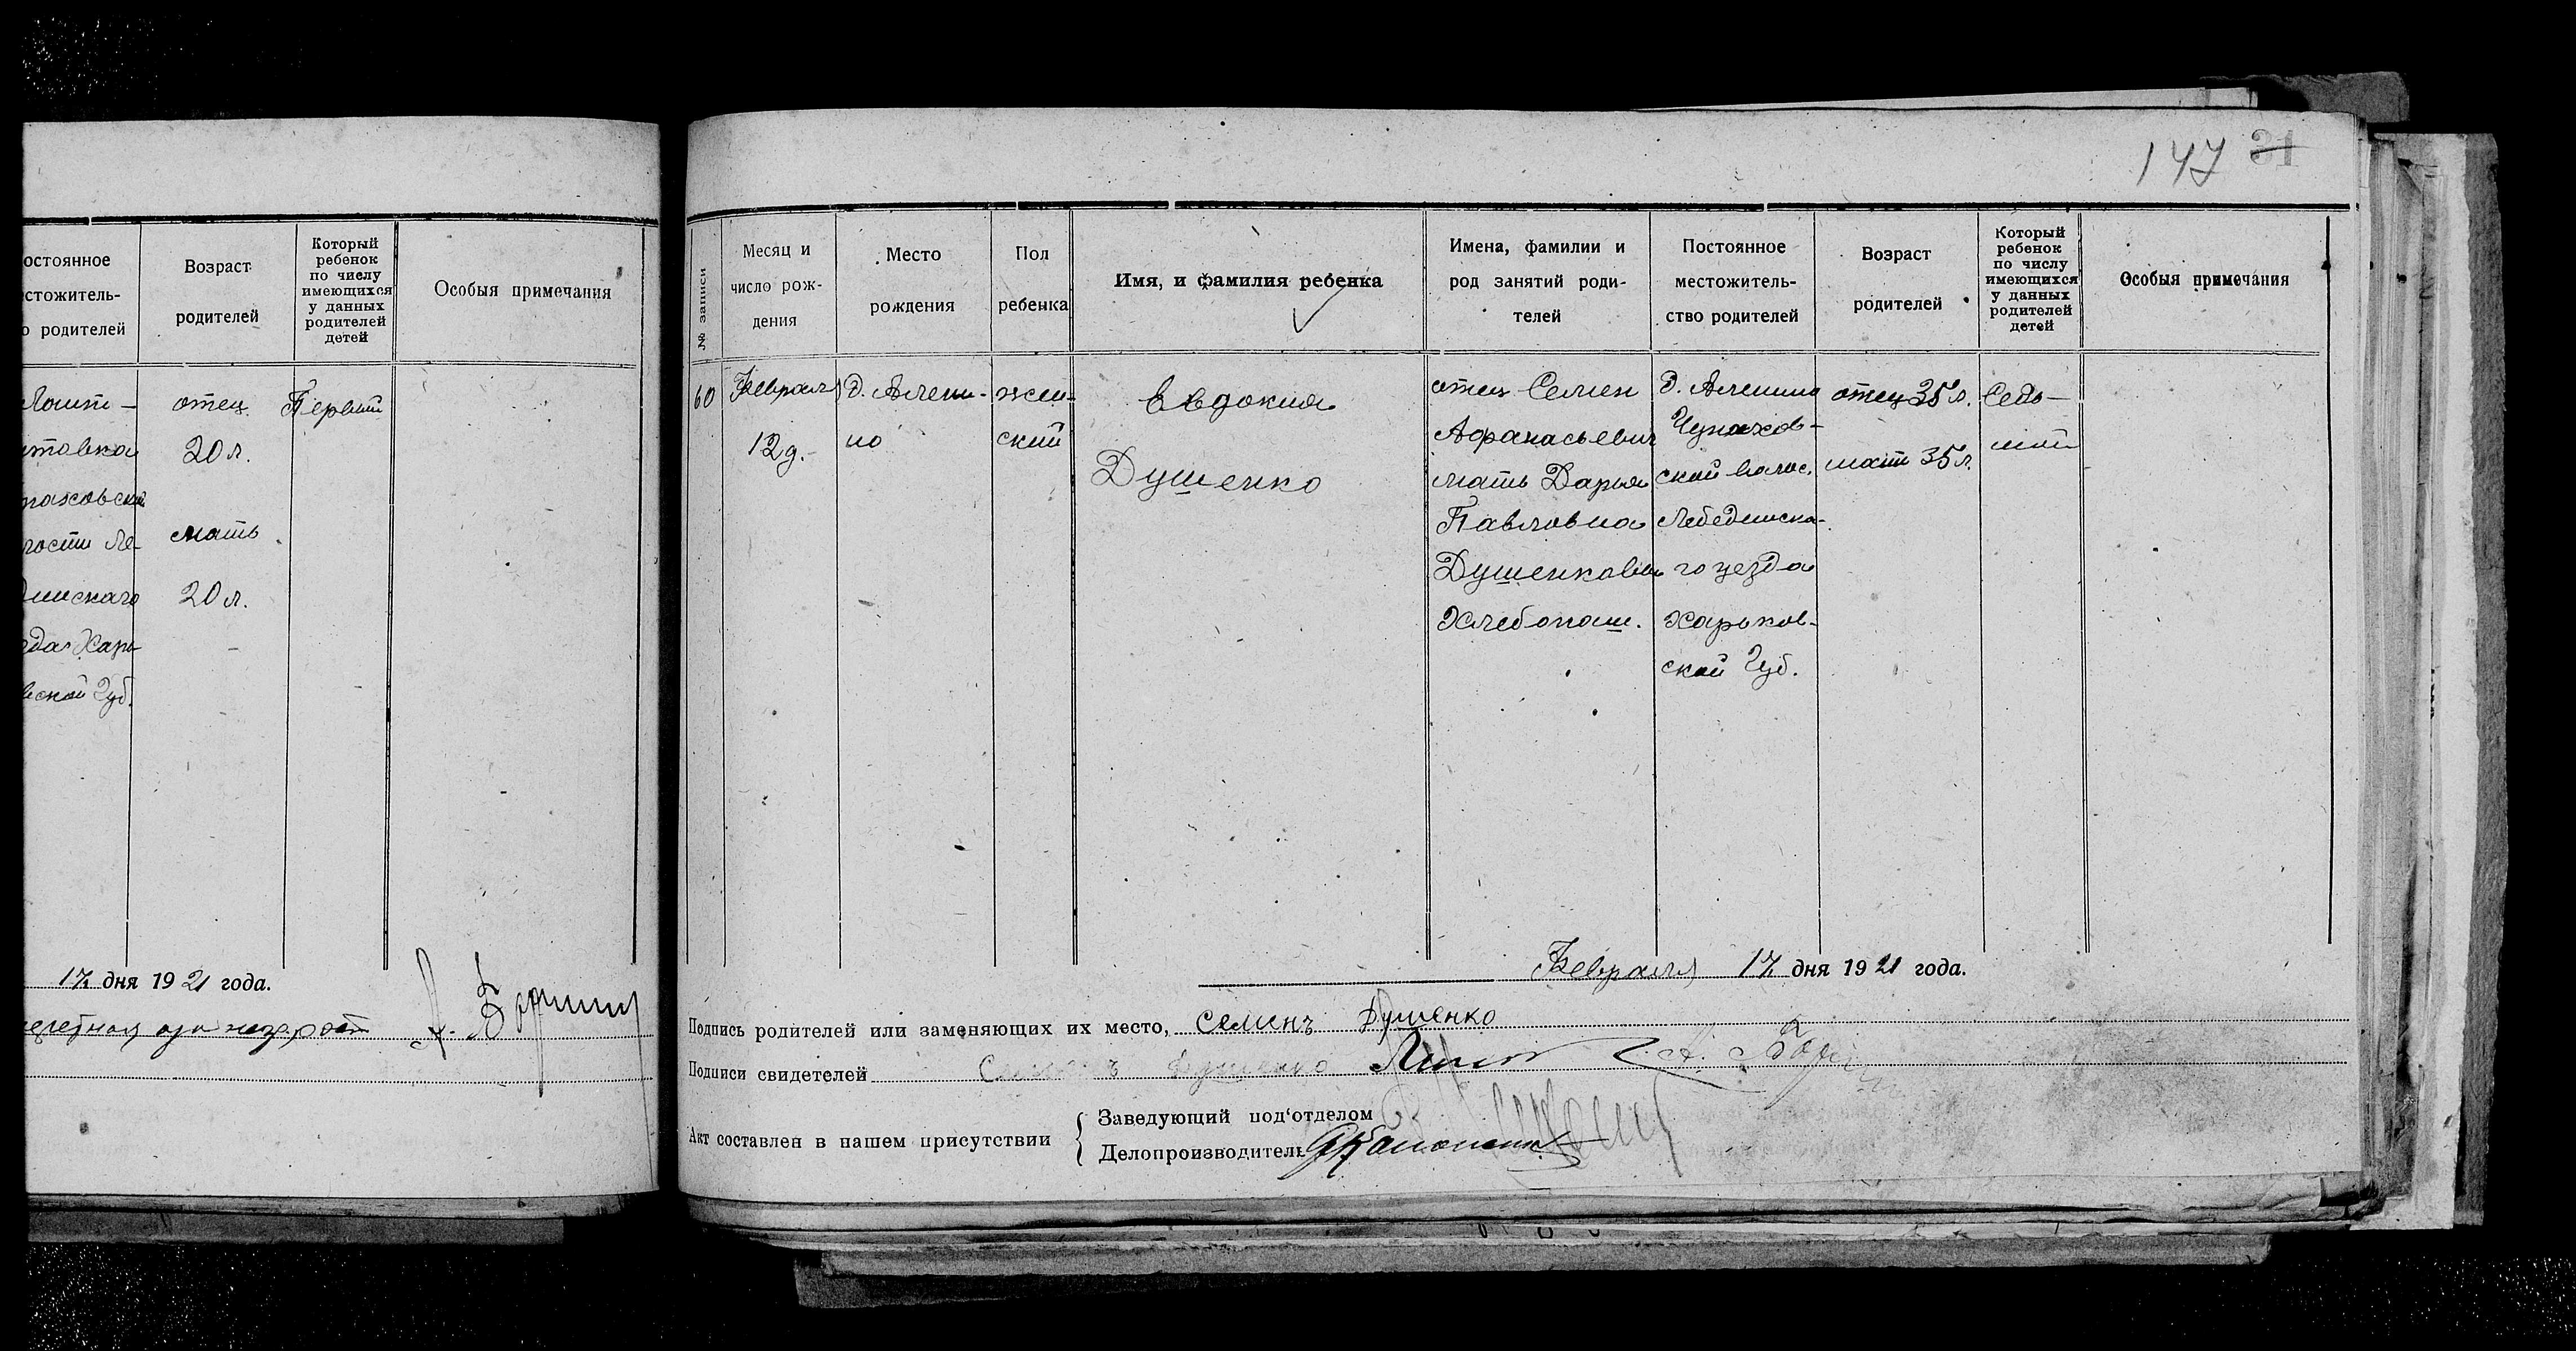 147 31
остоянное
стожитель-
о родителей
Возраст
родителей
Который
ребенок
по числу
имеющихся
у данных
родителей
детей
Особыя примечания
отец
20 л.
мать
20 л.
Первый
Харь-
ской Губ.
17 дня 1921 года.
№ записи
Месяц и
число рож-
дения
Место
рождения
Пол
ребенка
Имя, и фамилия ребенка
Имена, фамилии и
род занятий роди-
телей
Постоянное
местожитель-
ство родителей
Возраст
родителей
Который
ребенок
по числу
имеющихся
у данных
родителей
детей
Особыя примечания
60
Февраля
12 д.
д. Алеши-
но
жен-
ский
Евдокия
Душенко
отец Семен
Афанасьевич
мать Дарья
Павловна
Душенковы
Хлебопаш.
д. Алешино
Чупахов-
ской волос.
Лебединска-
го уезда
Харьков-
ской Губ.
отец 35 л.
мать 35 л.
Седь-
мой
Февраля 17 дня 1921 года.
Подпись родителей или заменяющих их место, Семенъ Душенко
Подписи свидетелей
Акт составлен в нашем присутствии
Заведующий под'отделом
Делопроизводитель